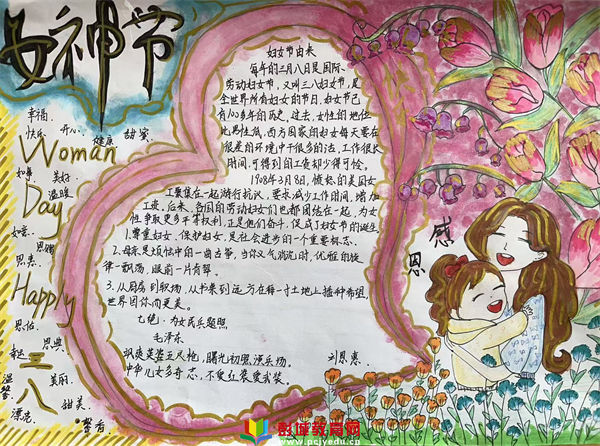 女神节
幸福
快乐
开心
健康
甜蜜
Woman
美好
温暖
Day
Happy
三八
美丽
甜美
漂亮
妇女节由来
每年的三月八日是国际
劳动妇女节，又叫三八妇女节，是
全世界所有妇女的节日，妇女节已
有100多年的历史，过去，女性的地位
比男性低，西方国家的妇女每天要在
很差的环境中干很多的活，工作很长
时间，可得到的工资却少得可怜。
1908年3月8日，愤怒的美国女
工聚集在一起游行抗议，要求减少工作时间，增加
工资，后来，各国的劳动妇女们也都团结在一起，为女
性争取更多平等权利，正是他们奋斗，促成了妇女节的诞生
1.尊重妇女、保护妇女，是社会进步的一个重要标志。
2.母亲是烦恼中的一曲古筝，当你义气消沉时，优雅的旋
律一飘荡，眼前一片青翠。
3.从厨房到职场，从书桌到远方在每一寸土地上播种希望，
世界因你而更美。
七绝·为女民兵题照
毛泽东
飒爽英姿五尺枪，曙光初照演兵场。
中华儿女多奇志，不爱红装爱武装。
感恩
彭城教育网
www.pcjyedu.cn